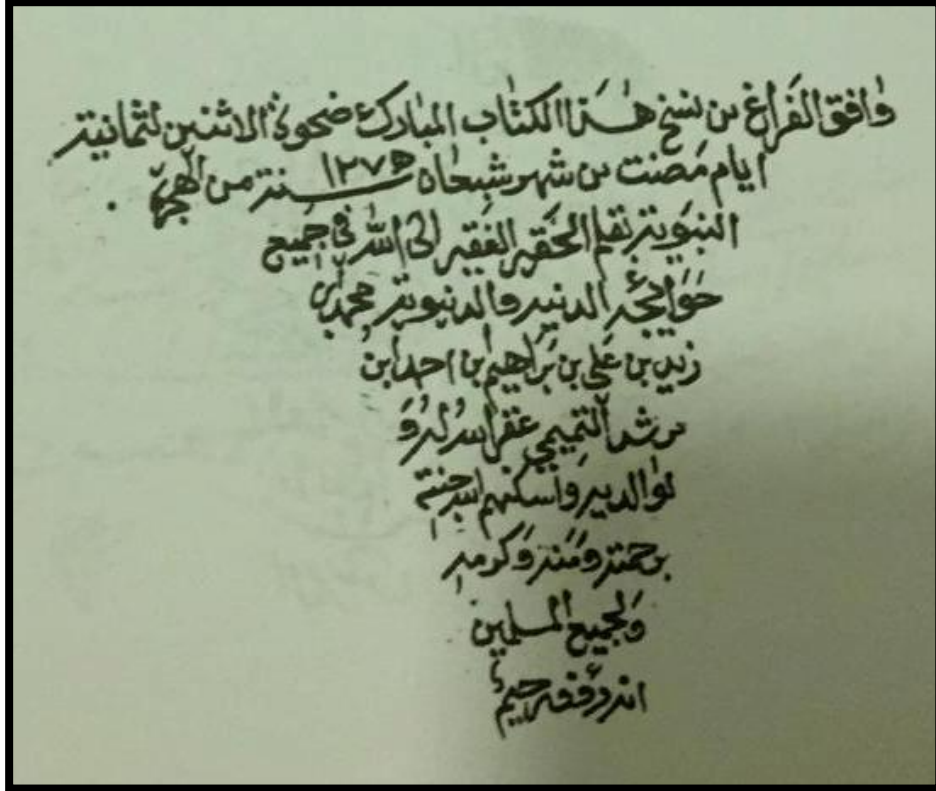 وافق الفراغ من نسخ هذا الكتاب المبارك ضحوة الاثنين لثمانية
ايام مضت من شهر شعبان ١٢٧٥ سنة من الهجرة
النبوية بقلم الحقير الفقير الى الله في جميع
حوائجه الدنيه والدنيوية محمد ابن
زيد بن علي بن براهيم ابن احمد ابن
رشد التميمي غفر الله له و
لوالديه واسكنهم الله جنته
برحمته ومنه وكرمه
ولجميع المسلمين
انه رؤف رحيم